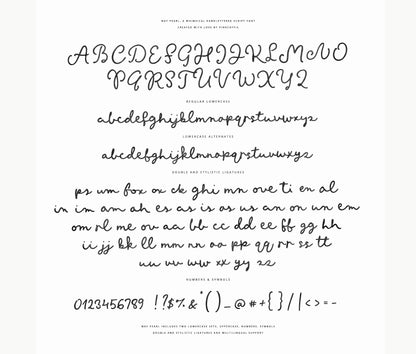 MAY PEARL, A WHIMSICAL HANDLETTERED SCRIPT FONT
CREATED WITH LOVE BY PINKCOFFIE
ABCDEFGHIJKLMNO
PQRSTUVWXYZ
REGULAR LOWERCASE
abcdefghijklmnopqrstuvwxyz
LOWERCASE ALTERNATES
abcdefghijklmnopqrstuvwxyz
DOUBLE AND STYLISTIC LIGATURES
ps um fox ox ck ghi mn ove ti en al
in im am ah es as is os us an on un em
om rl me ou aa bb cc dd ee ff gg hh
ii jj kk ll mm nn oo pp qq rr ss tt
uu vv ww xx yy zz
NUMBERS & SYMBOLS
0123456789 !?$%&*()_@#+{}/|<>=-
MAY PEARL INCLUDES TWO LOWERCASE SETS, UPPERCASE, NUMBERS, SYMBOLS,
DOUBLE AND STYLISTIC LIGATURES AND MULTILINGUAL SUPPORT